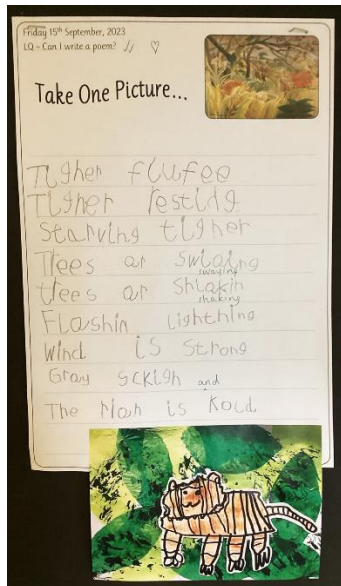 Friday 15th September, 2023
LQ – Can I write a poem?
Take One Picture...
Tigher flufee
Tigher resting
Starving tigher
Trees ar swiaing
swaying
trees ar Shiakin
shaking
Flashin lighthing
Wind is strong
Gray sckigh and
The rian is kold